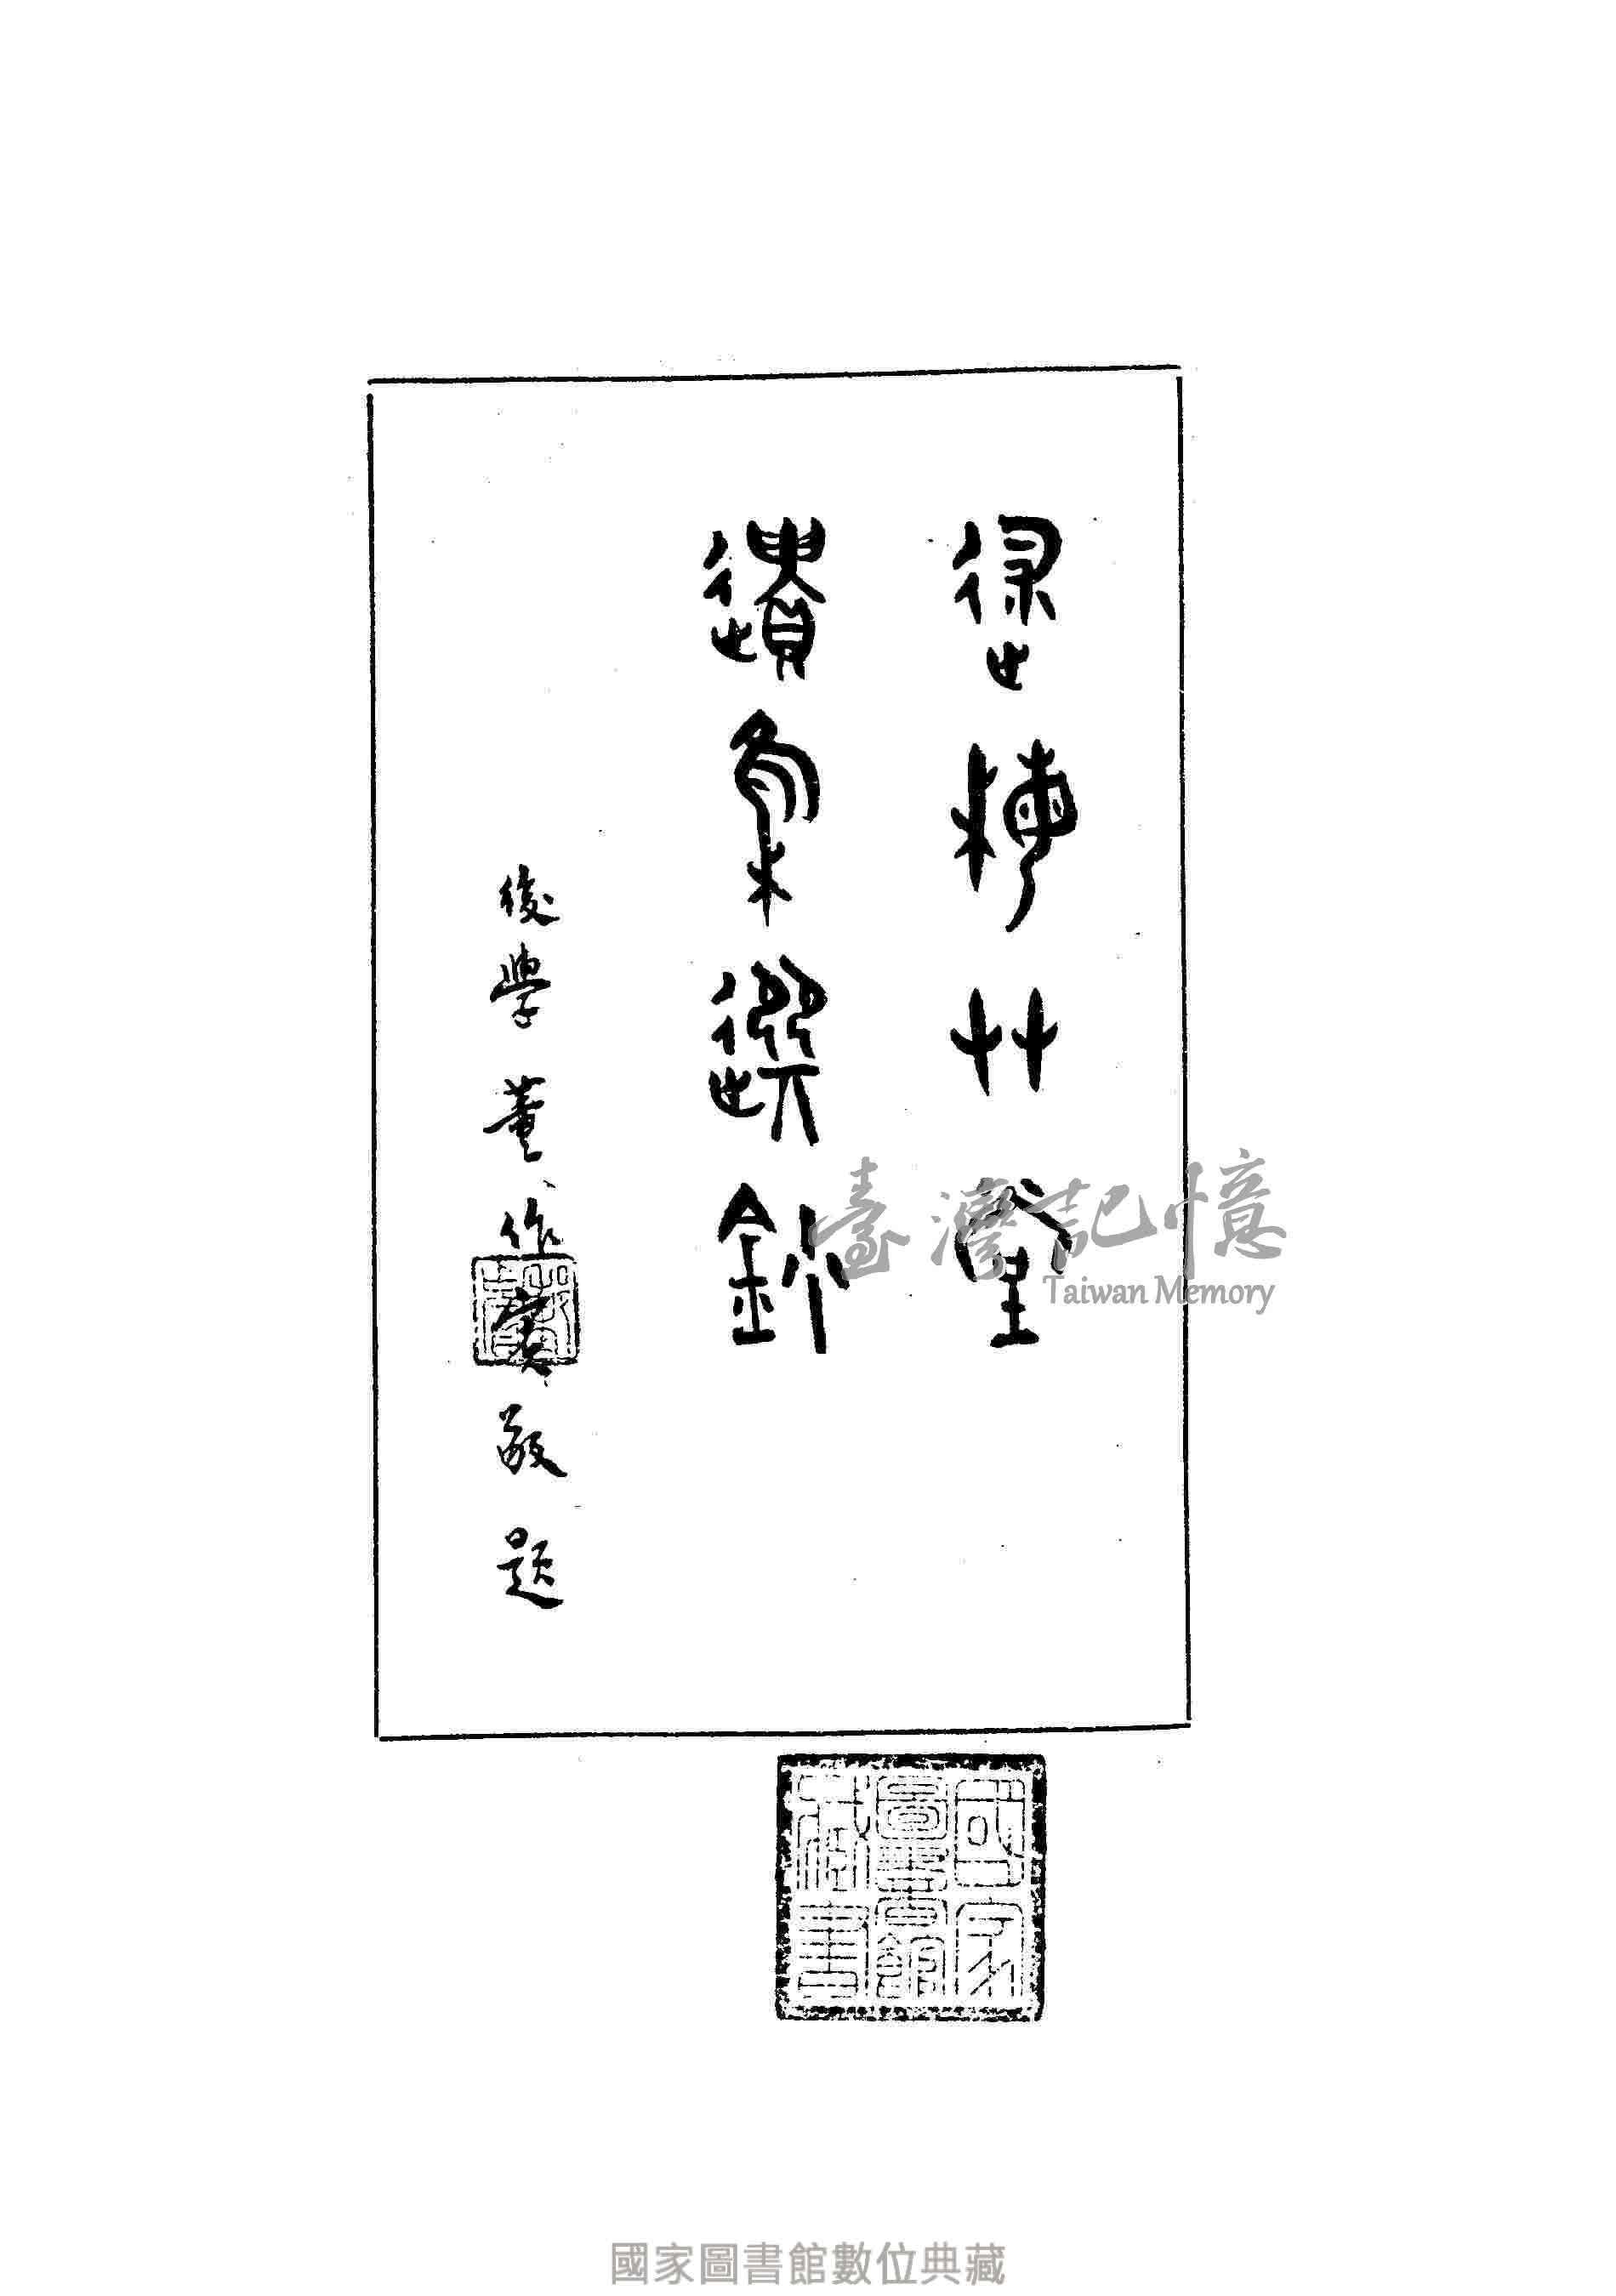 艸堂
遺集選鈔
後學 董作賓敬題
臺灣記憶
Taiwan Memory
國家
圖書館
藏書
國家圖書館數位典藏